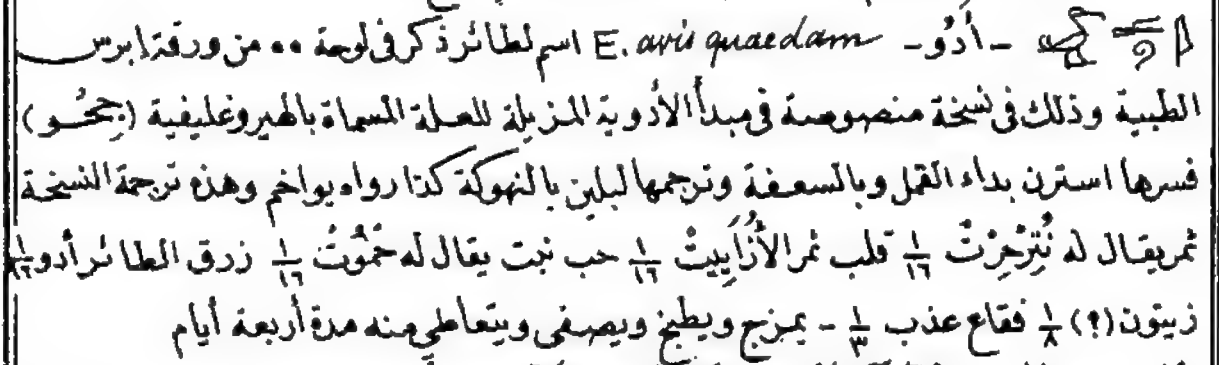 - أدُو - E. avis quaedam اسم لطائر ذكر فى لوحة ٥٠ من ورقة إبرس
الطبية وذلك فى نسخة منصوصة فى مبدأ الأدوية المزيلة للعلة المسماة بالهيروغليفية (جحُـو)
فسرها استرن بداء القمل وبالسعفة وترجمها لبلين بالنهوكة كذا رواه يواخم وهذه ترجمة النسخة
ثمر يقال له نُتِرْحِرْتْ ١/١٦ قلب ثمر الأزاييتْ ١/١٦ حب نبت يقال له خَمُوتْ ١/١٦ زرق الطائر أدو
زيتون (؟) ١/٨ فقاع عذب ١/٣ - يمزج ويطبخ ويصفى ويتعاطى منه مدة أربعة أيام